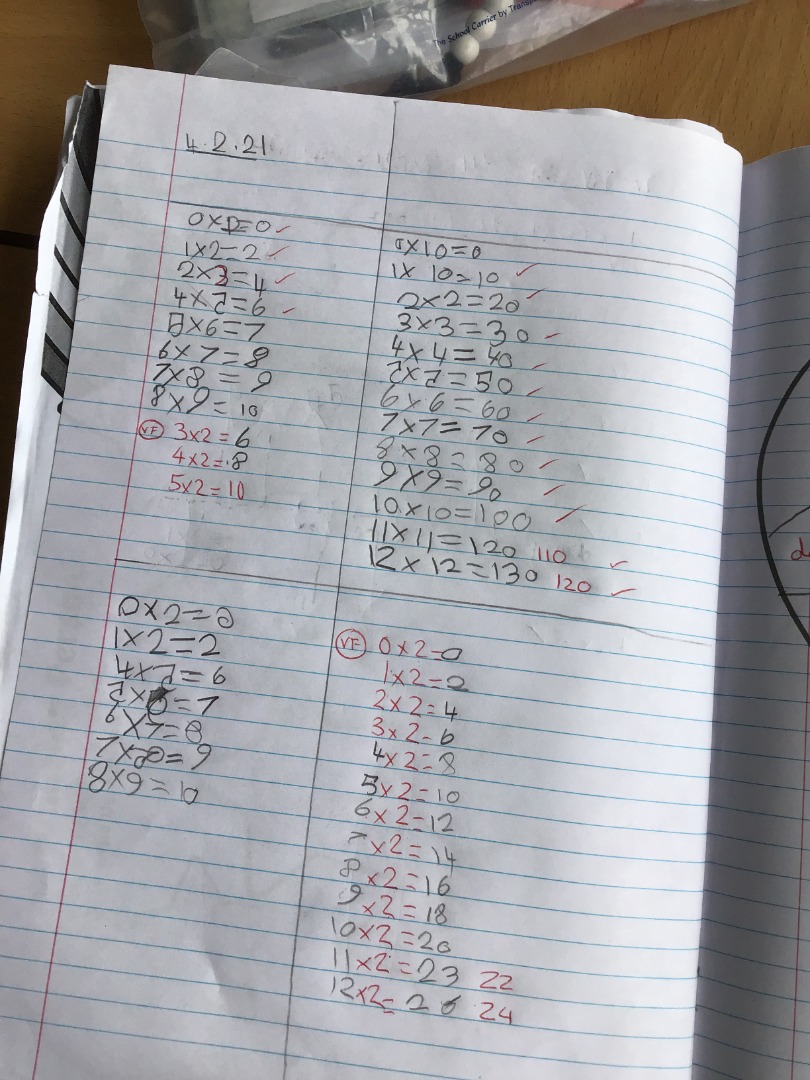 The School Carrier by
4.2.21
0x2=0
1x2=2
2x3=4
4x5=6
5x6=7
6x7=8
7x8=9
8x9=10
VF 3x2=6
4x2=8
5x2=10
0x10=0
1x10=10
2x2=20
3x3=30
4x4=40
5x5=50
6x6=60
7x7=70
8x8=80
9x9=90
10x10=100
11x11=120 110
12x12=130 120
0x2=0
1x2=2
4x5=6
5x6=7
6x7=8
7x8=9
8x9=10
VF 0x2=0
1x2=2
2x2=4
3x2=6
4x2=8
5x2=10
6x2=12
7x2=14
8x2=16
9x2=18
10x2=20
11x2=23 22
12x2=26 24